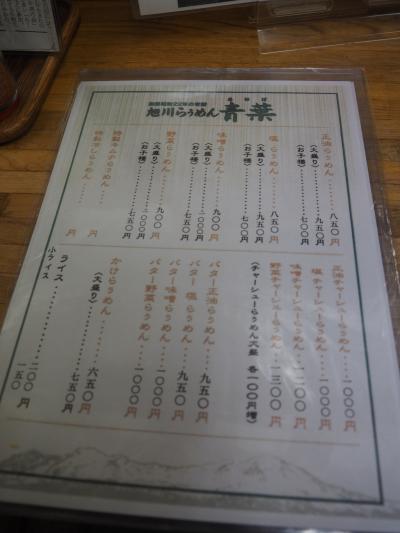 創業昭和22年の老舗
旭川らぅめん 青葉
正油らぅめん・・・・八五〇円
(大盛り)・・・・・九五〇円
(お子様)・・・・・七五〇円
塩 らぅめん・・・・八五〇円
(大盛り)・・・・・九五〇円
(お子様)・・・・・七五〇円
味噌らぅめん・・・・九〇〇円
(大盛り)・・・・一〇〇〇円
(お子様)・・・・・七五〇円
野菜らぅめん・・・・九〇〇円
(大盛り)・・・・一〇〇〇円
(お子様)・・・・・七五〇円
特製キムチらぅめん・・・・円
正油チャーシューらぅめん・・一〇〇〇円
塩 チャーシューらぅめん・・一〇〇〇円
味噌チャーシューらぅめん・・一二〇〇円
野菜チャーシューらぅめん・・一三〇〇円
(チャーシューらぅめん大盛 各一〇〇円増)
バター正油らぅめん・・九五〇円
バター 塩 らぅめん・・九五〇円
バター味噌らぅめん・・一〇〇〇円
バター野菜らぅめん・・一〇〇〇円
かけらぅめん・・・・六五〇円
(大盛り)・・・・・七五〇円
ライス・・・・・・二〇〇円
小ライス・・・・・一五〇円